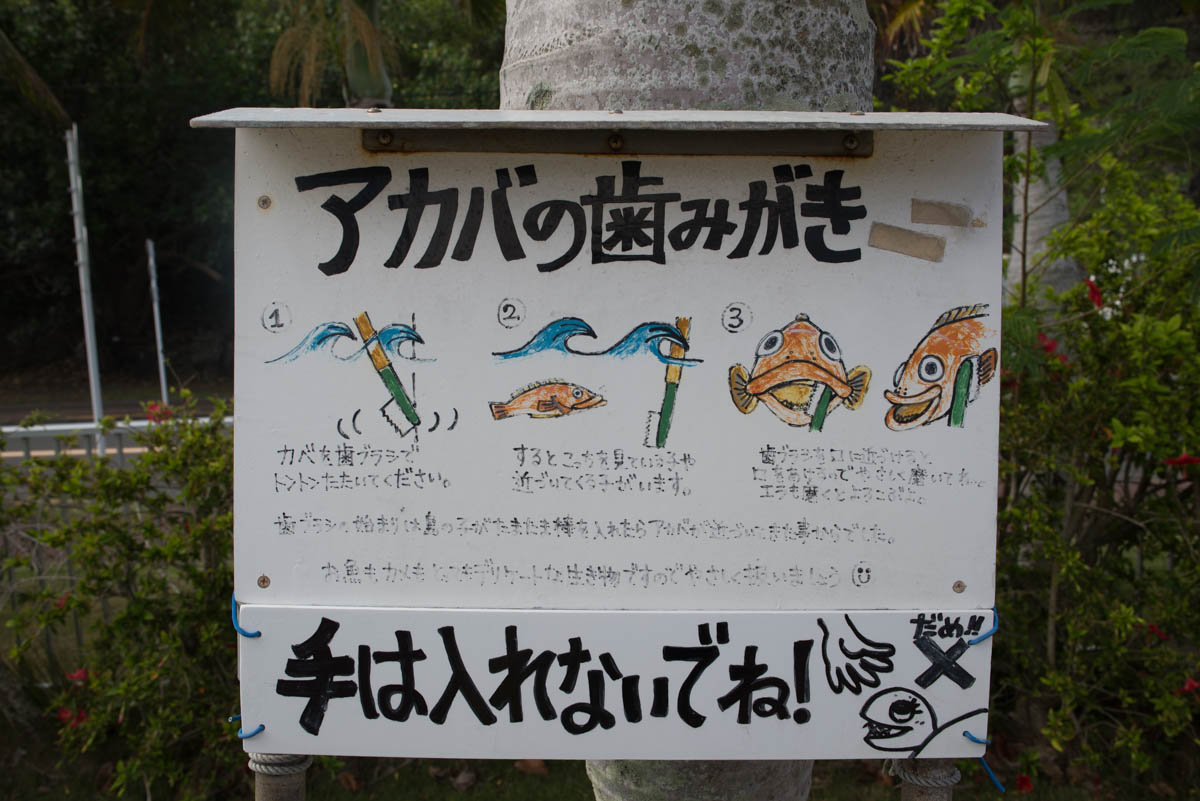 アカバの歯みがき
①
カベを歯ブラシで
トントンたたいてください。
②
するとこっちを見ている子や
近づいてくる子がいます。
③
歯ブラシを口に近づけると
口をあけるのでやさしく磨いてね。
エラも磨くとよろこぶよ。
歯ブラシの始まりは島の子がたまたま棒を入れたらアカバが近づいてきた事からでした。
お魚もカメもとてもデリケートな生き物ですのでやさしく扱いましょう
手は入れないでね!
だめ!!